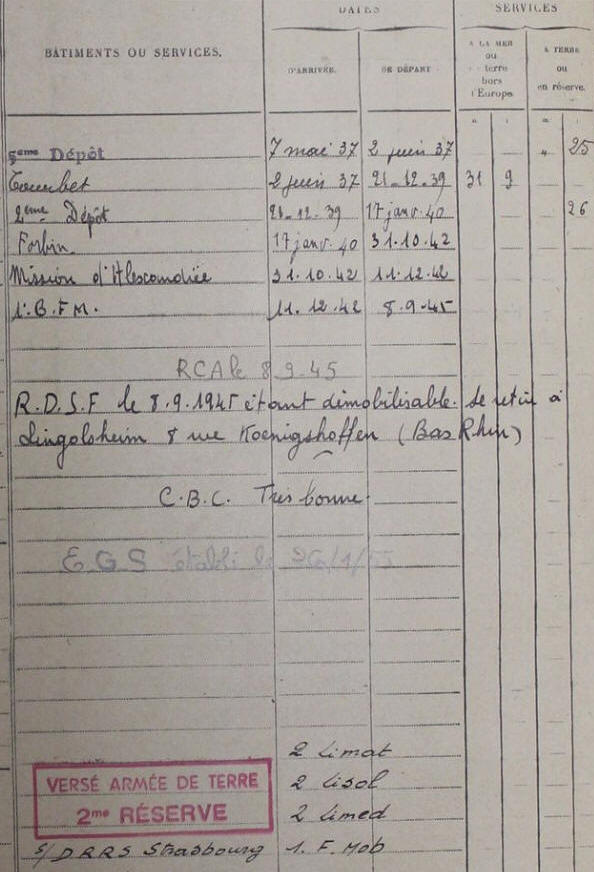 DATES
SERVICES
BÂTIMENTS OU SERVICES.
D'ARRIVÉE.
DE DÉPART
A LA MER
ou
à terre
hors
d'Europe
A TERRE
ou
en réserve.
5eme Dépôt 7 mai 37 2 juin 37 25
Courbet 2 juin 37 21-12-39 31 9
2eme Dépôt 21-12-39 17 janv. 40 26
Forbin 17 janv. 40 31.10.42
Mission d'Alexandrie 31.10.42 11.12.42
1e. B.F.M. 11.12.42 8.9.45
RCA le 8.9.45
R.D.S.F le 8.9.1945 étant démobilisable. Se retire à
Lingolsheim 8 rue Koenigshoffen (Bas Rhin)
C.B.C. Très bonne.
E G S établi le
2 Limat
VERSÉ ARMÉE DE TERRE
2 Lisol
2me RÉSERVE
2 Limed
s/ DRRS Strasbourg 1. F. Mob